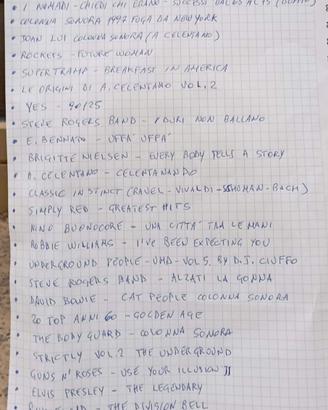 I NOMADI - CHIEDI CHI ERANO - SUCCESSI
COLONNA SONORA 1997 FUGA DA NEW YORK
JOAN LUI COLONNA SONORA (A CELENTANO)
ROCKETS - FUTURE WOMAN
SUPERTRAMP - BREAKFAST IN AMERICA
LE ORIGINI DI A. CELENTANO VOL. 2
YES - 90125
STEVE ROGERS BAND - I DURI NON BALLANO
E. BENNATO - UFFÀ UFFÀ
BRIGITTE NIELSEN - EVERY BODY TELLS A STORY
A. CELENTANO - CELENTANANDO
CLASSIC INSTINCT (RAVEL - VIVALDI - SHUMAN - BACH)
SIMPLY RED - GREATEST HITS
NINO BUONOCORE - UNA CITTÀ TRA LE MANI
ROBBIE WILLIAMS - I'VE BEEN EXPECTING YOU
UNDERGROUND PEOPLE - UMD - VOL 5. BY D.J. CIUFFO
STEVE ROGERS BAND - ALZATI LA GONNA
DAVID BOWIE - CAT PEOPLE COLONNA SONORA
20 TOP ANNI 60 - GOLDEN AGE
THE BODY GUARD - COLONNA SONORA
STRICTLY VOL. 2 THE UNDERGROUND
GUNS N' ROSES - USE YOUR ILLUSION II
ELVIS PRESLEY - THE LEGENDARY
- THE DIVISION BELL